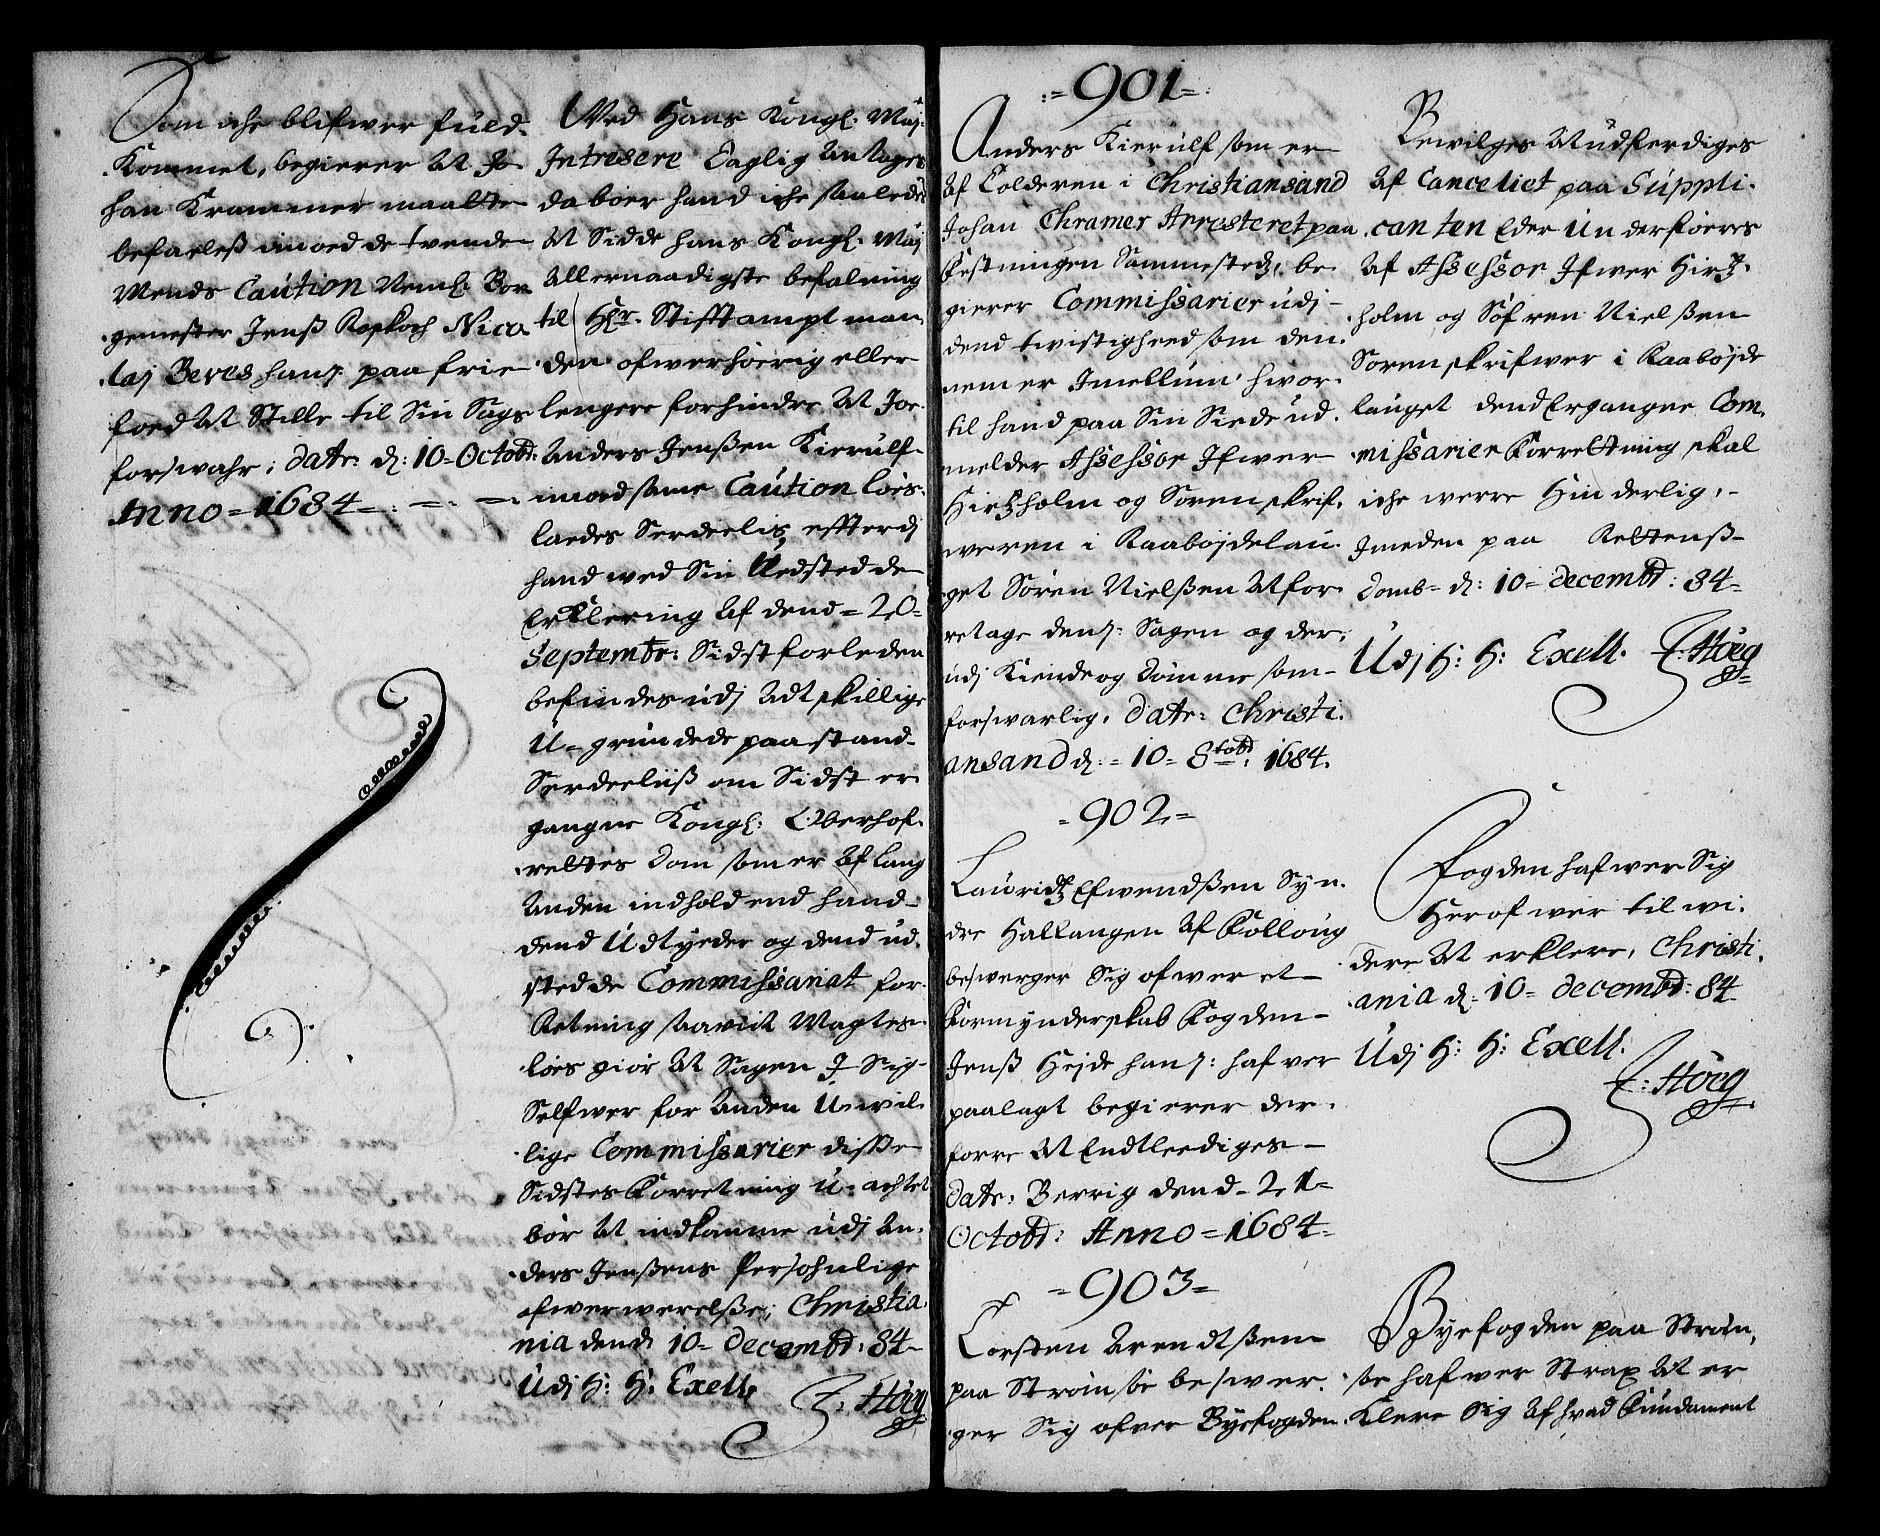 Som iche blifwer fuld-
kommet, begierer At Jo
han Krammer maatte
befaeleß imoed de tvende
Mends Caution Neml: Bor
gemester Jenß Ropkoch Nico
laj Beves hans: paa frie
foed At Stille til Sin Sags
forswahr; dat: d: 10 Octobr:
Anno = 1684
Wed Hans Kongl: Maj:
Intresere daglig Antages
da bör hand iche saaledes
At Sidde hans Kongl: Maj
Allernaadigste befalning
til Hr. Stifftamptman
den ofwerhörig eller
lengere forhindre At Joe
Anders Jenßen Kierulf
imod same Caution lös-
lades Serdeelis, efftterdj
hand wed Sin Udstedde
Erklering Af dend = 20 =
Septembr: Sidst forleden
befindes udj Adtskillige
U = grundede paastand
Serdeeliß om Sidst er
gangne Kongl: Oberhof-
rettes dom som er Af lang
Anden indhold end hand
dend Udtyder og dend ud-
stedde Commissariat for-
Retning saawit Magtes-
löes giör At Sagen J Sig
Selfwer for Anden U-wil-
lige Commissarier disse
Sidstes Forretning U-achtet
bör At indkomme udj An-
ders Jenßens Persohnlige
ofwerwerelße; Christia-
nia dend 10 = decembr: 84
Udj H: H: Exell:
F: Höeg
901
Anders Kierulf som er
Af Tolderen i Christiansand
Johan Chramer Arresteret paa
Festningen Sammesteds, be
gierer Commissarier udj
dend twistighed som den-
nem er Jmellum hvor-
til hand paa Sin Siede ud-
melder Assessor Jfwer
Hirtzholm og Sorenskrif-
weren i Raabøjdelau-
get Sören Nielßen At for-
retage dens: Sagen og der-
udj Kiende og Dömme som
forswarlig. dat: Christi-
ansand d: = 10 = 8tobr: 1684.
Bewilges At udferdiges
Af Canceliet paa Suppli-
canten Eder underföerer
Af Assessor Jfwer Hirtz-
holm og Söfren Nielßen
Sorenskrifwer i Raabøjde
lauget dend Ergangne Com-
missarier Forrettning skal
iche werre Hinderlig,
Jmeden paa Rettenß
Domb = d: 10 = decembr: 84
Udj H: H: Exell. F: Höeg
902
Lauridtz Efwendßen Syn-
dre Hallangen Af Folloug
beswerger Sig ofwer et
Formynderskab Fogden
Jenß Hejde hans: hafver
paalagt begierer der-
forre At Endtleediges
dat: Berrig dend 21
Octobr: Anno = 1684
Fogden hafwer Sig
Herofwer til wi-
dere At erklere, Christi-
ania d: 10 = decembr: 84
Udj H: H: Exell.
F: Höeg
903
Torsten Arendtßen
paa Strömsöe beswer-
ger Sig ofver Byefogden
Byefogden paa Ström-
söe hafwer Strax At er
klere Sig Af hvad Fundament